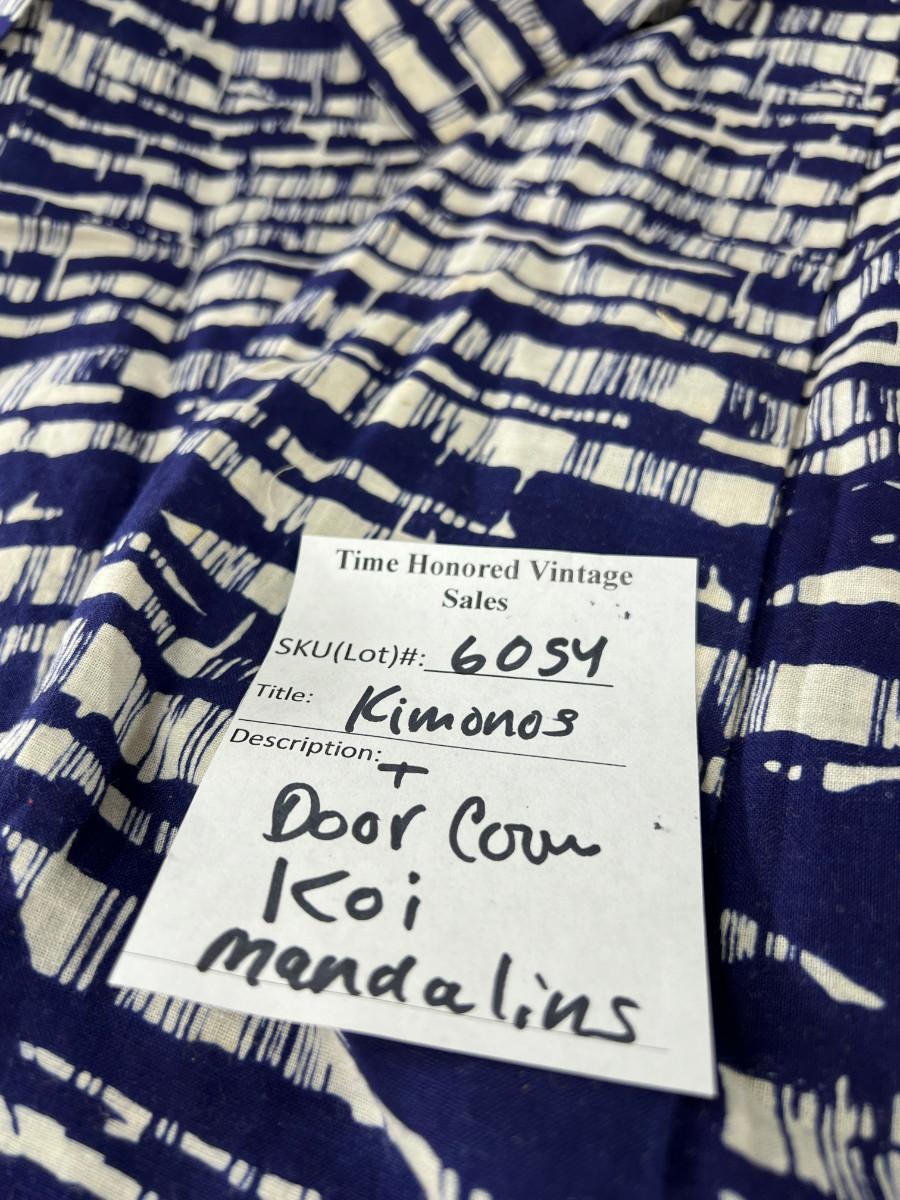 Time Honored Vintage
Sales
SKU(Lot)#: 6054
Title: Kimonos
Description:
+
Door
Koi
mandalins